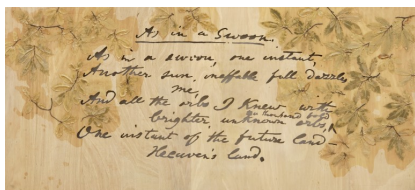 As in a Swoon.
As in a swoon, one instant,
Another sun, ineffable full dazzles
me,
And all the orbs I knew with
thousand fold
brighter unknown orbs,
One instant of the future land
Heaven's land.